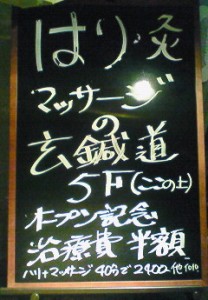 はり灸
マッサージ
の
玄鍼道
5F(ここの上)
オープン記念
治療費半額
ハリ+マッサージ40分で2400-他